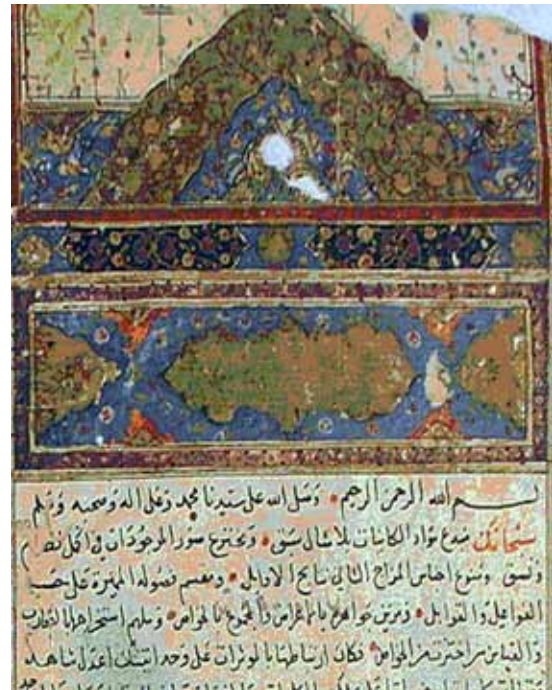 بسم الله الرحمن الرحيم وصلى الله على سيدنا محمد وعلى اله وصحبه وسلم
سبحانك مبدع مواد الكائنات بلا مثال سبق ومخترع صور الموجودات في اكمل نظام
ونسق ومنوع اجناس المزاج الثاني نتائج الاوايل ومقسم فصوله المميزة على حسب
الفواعل والقوابل ومزين جواهره بالاعراض والمجموع بالخواص وملهم استخراجها بالتجارب
والقياس من اخترت من الخواص فكان ارتباطها بالموثرات على وحدانيتك اعدل شاهد